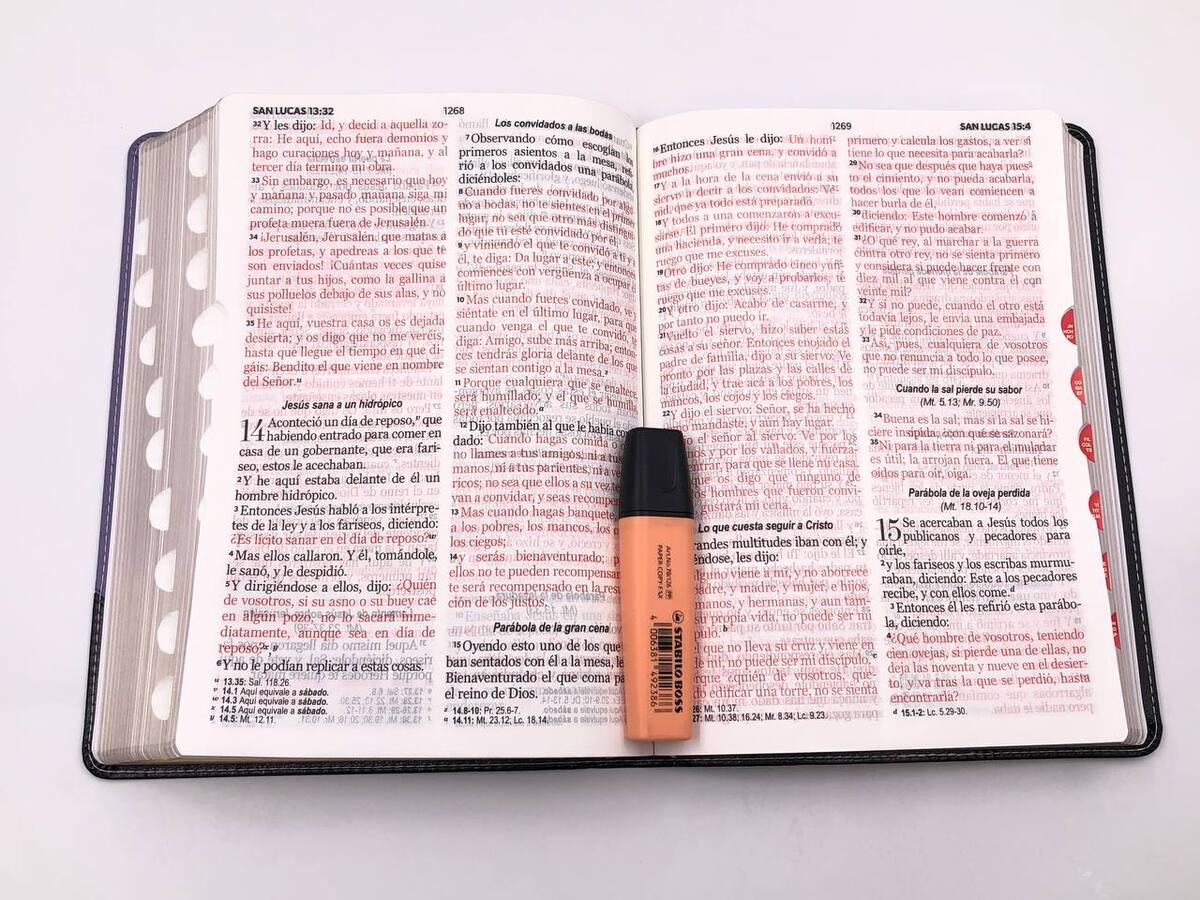 SAN LUCAS 13:32
1268
32 Y les dijo: Id, y decid a aquella zo-
rra: He aquí, echo fuera demonios y
hago curaciones hoy y mañana, y al
tercer día termino mi obra.
33 Sin embargo, es necesario que hoy
y mañana y pasado mañana siga mi
camino; porque no es posible que un
profeta muera fuera de Jerusalén.
34 ¡Jerusalén, Jerusalén, que matas a
los profetas, y apedreas a los que te
son enviados! ¡Cuántas veces quise
juntar a tus hijos, como la gallina a
sus polluelos debajo de sus alas, y no
quisiste!
35 He aquí, vuestra casa os es dejada
desierta; y os digo que no me veréis,
hasta que llegue el tiempo en que di-
gáis: Bendito el que viene en nombre
del Señor.
Jesús sana a un hidrópico
14 Aconteció un día de reposo, que
habiendo entrado para comer en
casa de un gobernante, que era fari-
seo, estos le acechaban.
2 Y he aquí estaba delante de él un
hombre hidrópico.
3 Entonces Jesús habló a los intérpre-
tes de la ley y a los fariseos, diciendo:
¿Es lícito sanar en el día de reposo?
4 Mas ellos callaron. Y él, tomándole,
le sanó, y le despidió.
5 Y dirigiéndose a ellos, dijo: ¿Quién
de vosotros, si su asno o su buey cae
en algún pozo, no lo sacará inme-
diatamente, aunque sea en día de
reposo?
6 Y no le podían replicar a estas cosas.
13.35: Sal. 118.26.
14.1 Aquí equivale a sábado.
14.3 Aquí equivale a sábado.
14.5 Aquí equivale a sábado.
14.5: Mt. 12.11.
Los convidados a las bodas
7 Observando cómo escogían los
primeros asientos a la mesa, refi-
rió a los convidados una parábola,
diciéndoles:
8 Cuando fueres convidado por alguno
no a bodas, no te sientes en el primer
lugar, no sea que otro más distingui-
do que tú esté convidado por él,
9 y viniendo el que te convidó a ti y a
él, te diga: Da lugar a este; y entonces
comiences con vergüenza a ocupar el
último lugar.
10 Mas cuando fueres convidado, ve y
siéntate en el último lugar, para que
cuando venga el que te convidó, te
diga: Amigo, sube más arriba; enton-
ces tendrás gloria delante de los que
se sientan contigo a la mesa.
11 Porque cualquiera que se enaltece,
será humillado; y el que se humilla,
será enaltecido.
12 Dijo también al que le había con
dado: Cuando hagas comida o
no llames a tus amigos, ni a tus
manos, ni a tus parientes, ni a ve
ricos; no sea que ellos a su vez te
van a convidar, y seas recompen
13 Mas cuando hagas banquete,
a los pobres, los mancos, los co
los ciegos;
14 y serás bienaventurado;
ellos no te pueden recompensar
te será recompensado en la resu
ción de los justos.
Parábola de la gran cena
15 Oyendo esto uno de los que
ban sentados con él a la mesa, le
Bienaventurado el que coma pa
el reino de Dios.
14.8-10: Pr. 25.6-7.
14.11: Mt. 23.12; Lc. 18.14.
1269
SAN LUCAS 15:4
16 Entonces Jesús le dijo: Un hom-
bre hizo una gran cena, y convidó a
muchos.
17 Y a la hora de la cena envió a su
siervo a decir a los convidados: Ve-
nid, que ya todo está preparado.
18 Y todos a una comenzaron a excu-
sarse. El primero dijo: He comprado
una hacienda, y necesito ir a verla; te
ruego que me excuses.
19 Otro dijo: He comprado cinco yun-
tas de bueyes, y voy a probarlos; te
ruego que me excuses.
20 Y otro dijo: Acabo de casarme, y
por tanto no puedo ir.
21 Vuelto el siervo, hizo saber estas
cosas a su señor. Entonces enojado el
padre de familia, dijo a su siervo: Ve
pronto por las plazas y las calles de
la ciudad, y trae acá a los pobres, los
mancos, los cojos y los ciegos.
22 Y dijo el siervo: Señor, se ha hecho
mo mandaste, y aún hay lugar.
o el señor al siervo: Ve por los
nos y por los vallados, y fuérza-
entrar, para que se llene mi casa.
e os digo que ninguno de
os hombres que fueron convi-
gustará mi cena.
Lo que cuesta seguir a Cristo
randes multitudes iban con él; y
éndose, les dijo:
lguno viene a mí, y no aborrece
adre, y madre, y mujer, e hijos,
manos, y hermanas, y aun tam-
su propia vida, no puede ser mi
pulo.
que no lleva su cruz y viene en
mí, no puede ser mi discípulo.
que ¿quién de vosotros, que-
edificar una torre, no se sienta
26: Mt. 10.37.
27: Mt. 10.38; 16.24; Mr. 8.34; Lc. 9.23.
primero y calcula los gastos, a ver si
tiene lo que necesita para acabarla?
29 No sea que después que haya pues-
to el cimiento, y no pueda acabarla,
todos los que lo vean comiencen a
hacer burla de él,
30 diciendo: Este hombre comenzó a
edificar, y no pudo acabar.
31 ¿O qué rey, al marchar a la guerra
contra otro rey, no se sienta primero
y considera si puede hacer frente con
diez mil al que viene contra él con
veinte mil?
32 Y si no puede, cuando el otro está
todavía lejos, le envía una embajada
y le pide condiciones de paz.
33 Así, pues, cualquiera de vosotros
que no renuncia a todo lo que posee,
no puede ser mi discípulo.
Cuando la sal pierde su sabor
(Mt. 5.13; Mr. 9.50)
34 Buena es la sal; mas si la sal se hi-
ciere insípida, ¿con qué se sazonará?
35 Ni para la tierra ni para el muladar
es útil; la arrojan fuera. El que tiene
oídos para oír, oiga.
Parábola de la oveja perdida
(Mt. 18.10-14)
15 Se acercaban a Jesús todos los
publicanos y pecadores para
oírle,
2 y los fariseos y los escribas murmu-
raban, diciendo: Este a los pecadores
recibe, y con ellos come.
3 Entonces él les refirió esta parábo-
la, diciendo:
4 ¿Qué hombre de vosotros, teniendo
cien ovejas, si pierde una de ellas, no
deja las noventa y nueve en el desier-
to, y va tras la que se perdió, hasta
encontrarla?
15.1-2: Lc. 5.29-30.
Art.No. 70/126
PAPER COPY FAX
STABILO BOSS
4 006381 492386